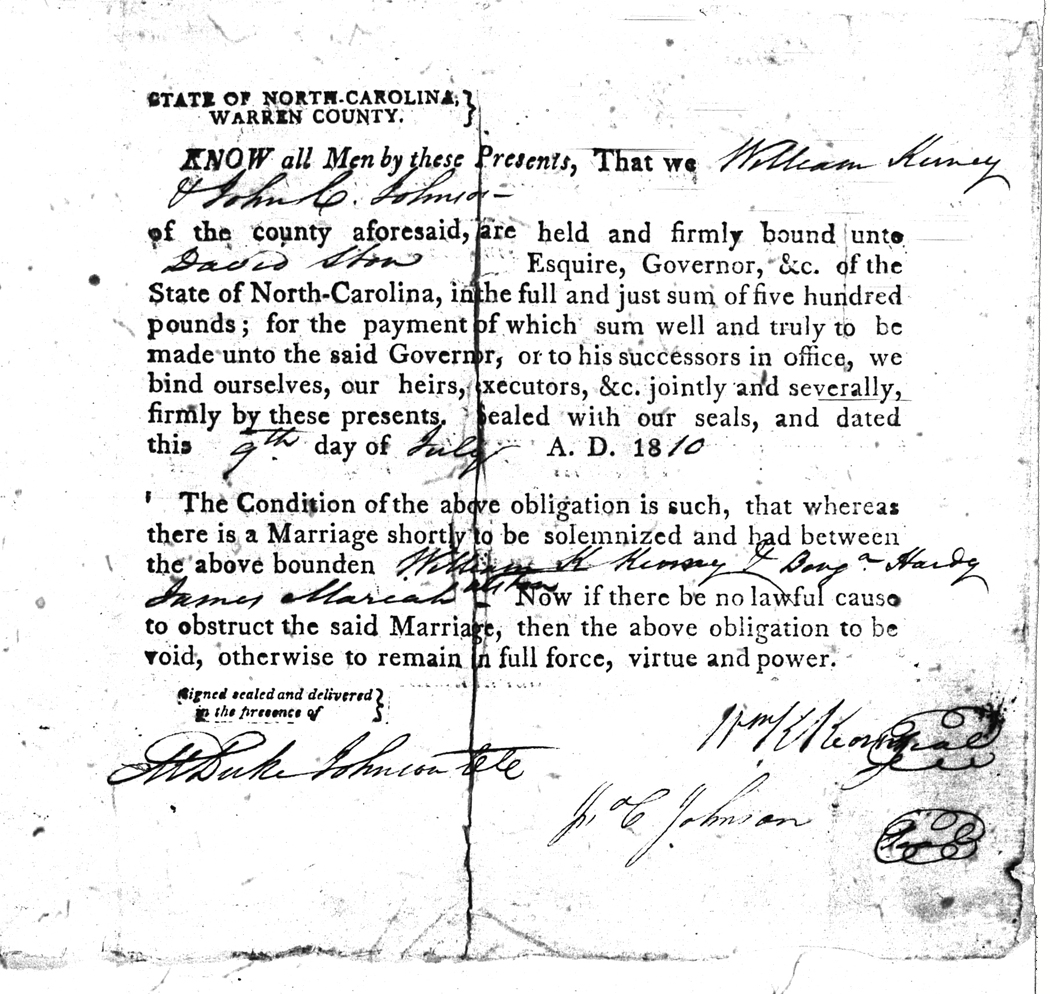 STATE OF NORTH-CAROLINA, }
WARREN COUNTY.
KNOW all Men by these Presents, That we William Kerney
& John C. Johnson
of the county aforesaid, are held and firmly bound unto
David Ston Esquire, Governor, &c. of the
State of North-Carolina, in the full and just sum of five hundred
pounds; for the payment of which sum well and truly to be
made unto the said Governor, or to his successors in office, we
bind ourselves, our heirs, executors, &c. jointly and severally,
firmly by these presents. Sealed with our seals, and dated
this 9th day of July A. D. 1810
The Condition of the above obligation is such, that whereas
there is a Marriage shortly to be solemnized and had between
the above bounden William K Kearney &
James Mareah Alston Now if there be no lawful cause
to obstruct the said Marriage, then the above obligation to be
void, otherwise to remain in full force, virtue and power.
Signed sealed and delivered }
in the presence of
Wm K Kearney Seal
M Duke Johnson
Jno C Johnson